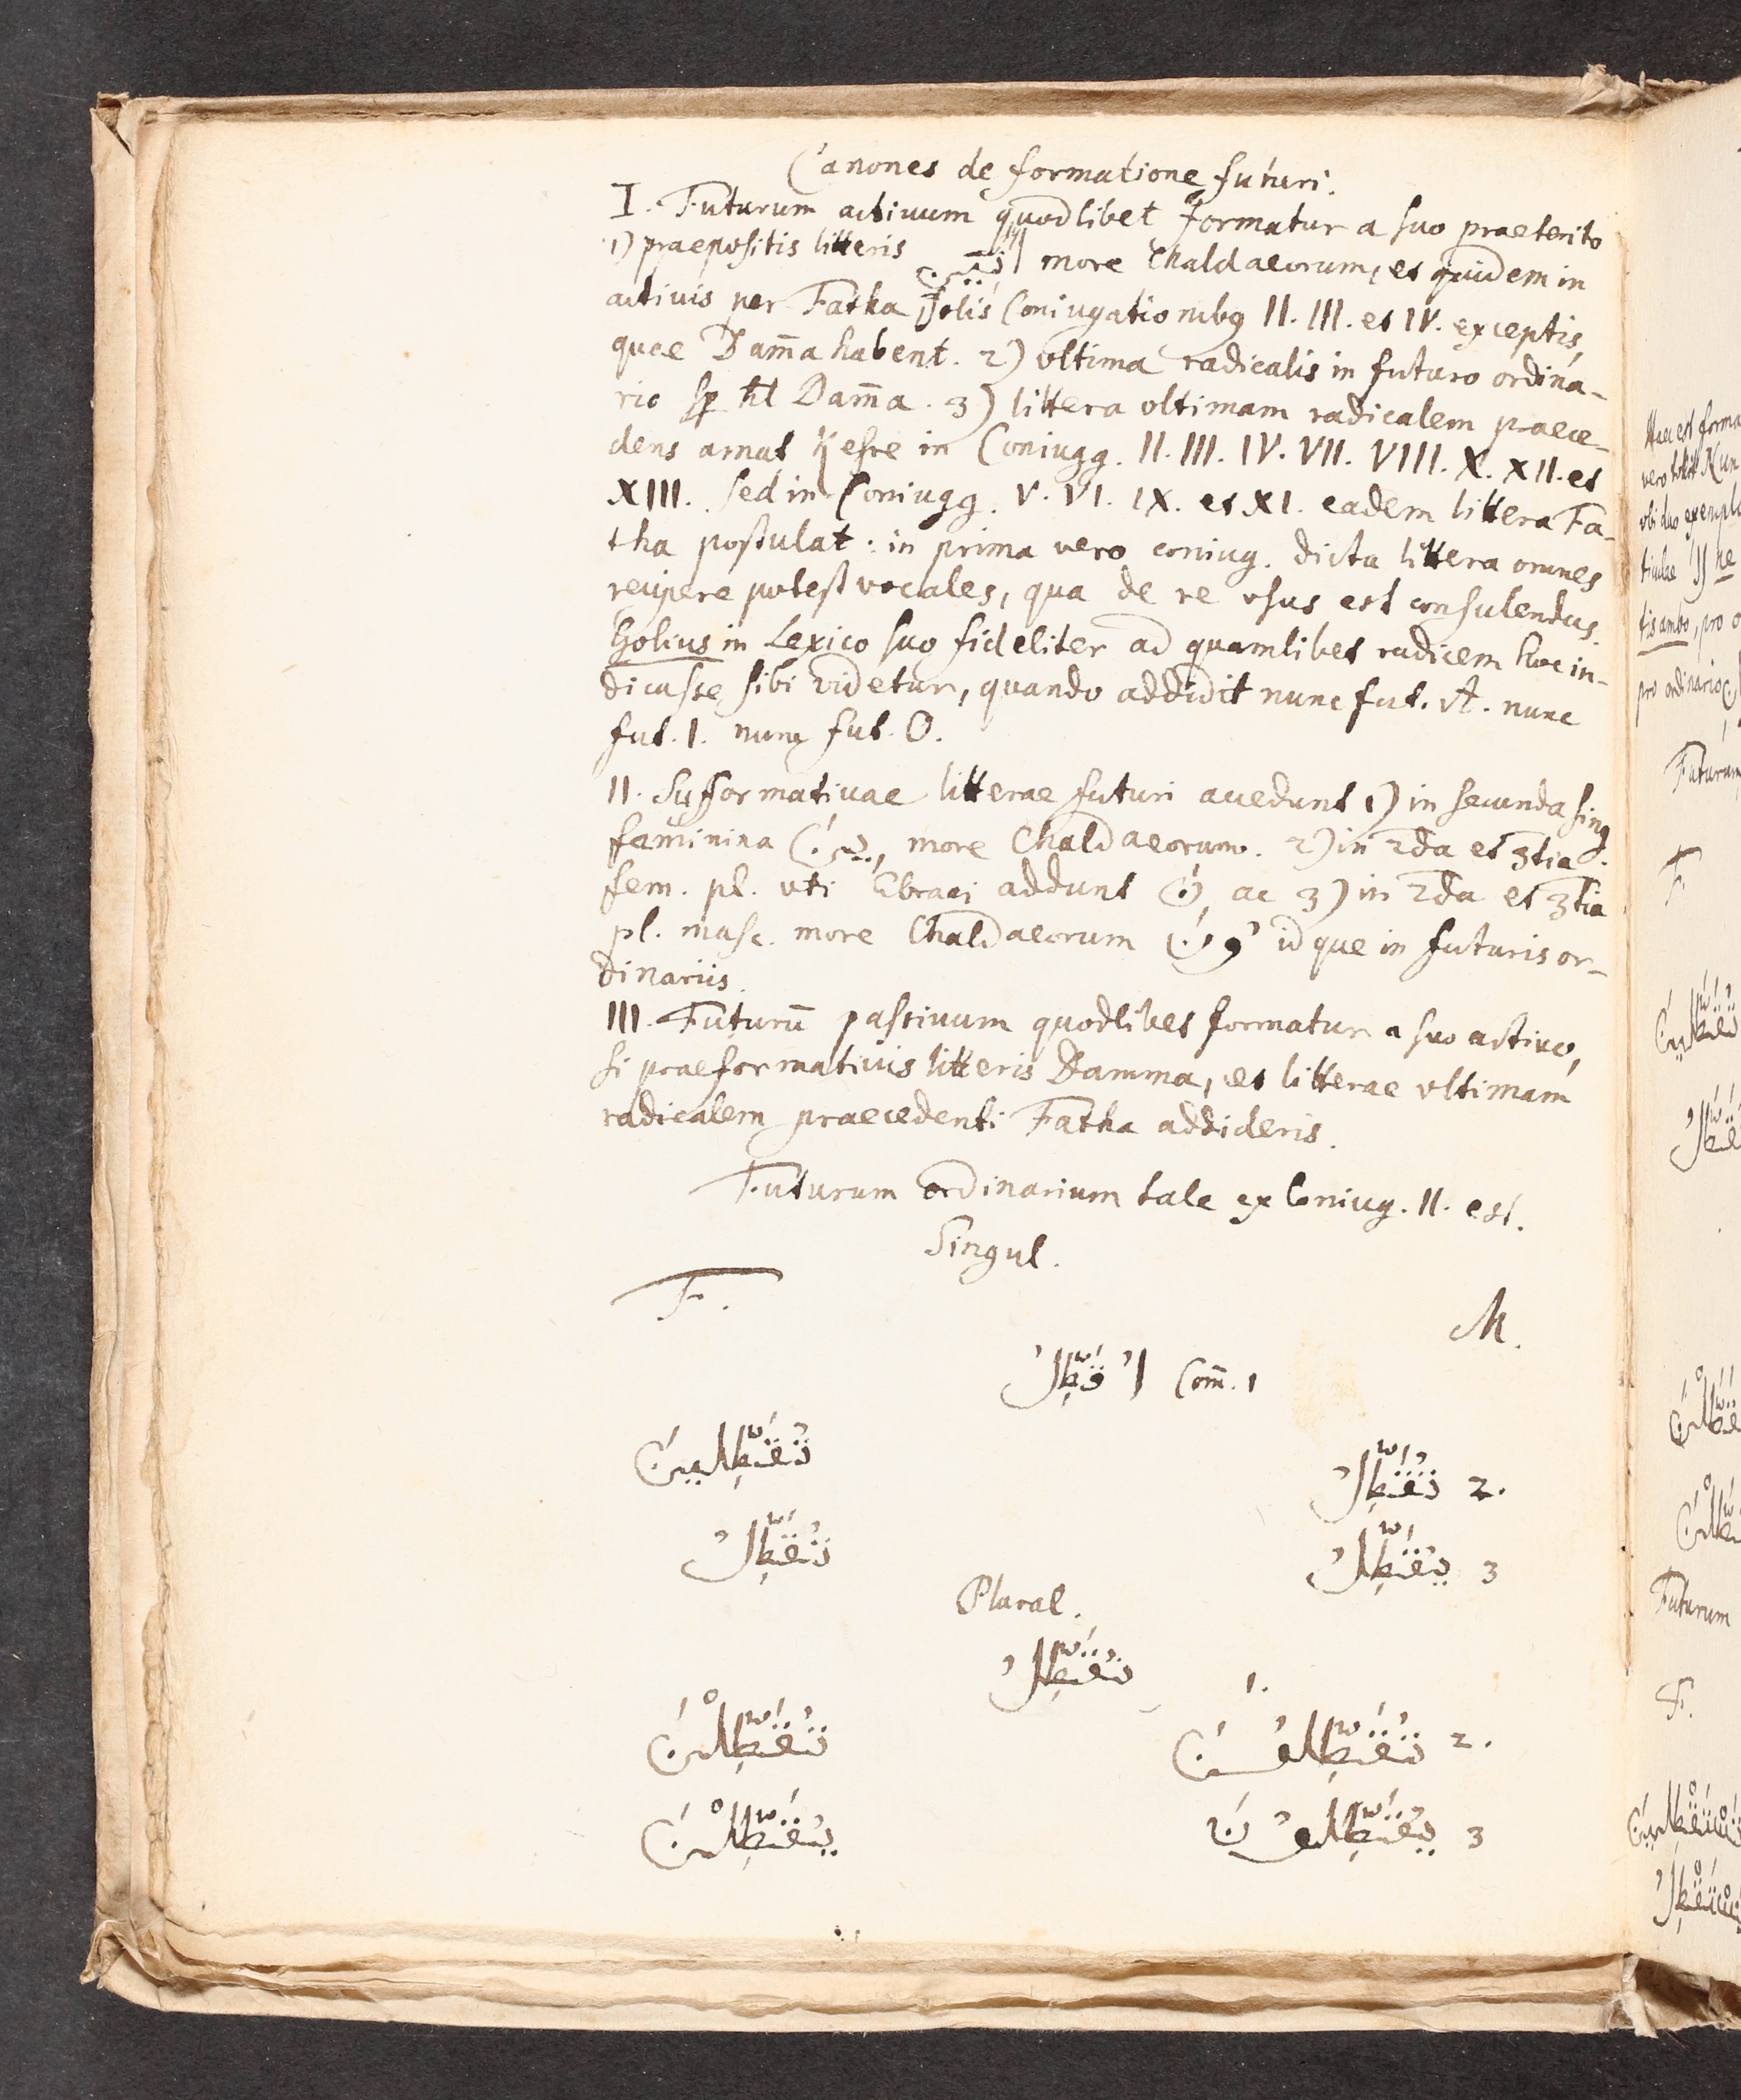 Canones de formatione futuri.
I. Futurum activum quodlibet formatur a suo praeterito
1) praepositis litteris more Chaldaeorum, et quidem in
activis per Fatha, solis Coniugationibq II. III. et IV. exceptis,
quae Dam̄a habent. 2) vltima radicalis in futuro ordina-
rio sp ht Dam̄a. 3) littera vltimam radicalem praece-
dens amat Kesre in Coniugg. II. III. IV. VII. VIII. X. XII. et
XIII. sed in Coniugg. V. VI. IX. et XI. eadem littera Fa-
tha postulat: in prima vero coniug. dicta littera omnes
recipere potest vocales, qua de re vsus est consulendus.
Golius in Lexico suo fideliter ad quamlibet radicem hoc in-
dicasse sibi videtur, quando addidit nunc fut. A. nunc
fut. I. nunc fut. O.
II. Sufformativae litterae futuri accedunt 1) in secunda sing.
feminina ين, more Chaldaeorum. 2) in 2da et 3tia
fem. pl. uti Ebraei addunt نَ, ac 3) in 2da et 3tia
pl. masc. more Chaldaeorum ُونَ idque in futuris or-
dinariis.
III. Futurū passivum quodlibet formatur a suo activo,
si praeformativis litteris Damma, et litterae vltimam
radicalem praecedenti Fatha addideris.
Futurum ordinarium tale ex Coniug. II. est.
Singul.
F. M.
اُقَطِّلُ Com̄. 1
تُقَطِّلِينَ تُقَطِّلُ 2.
تُقَطِّلُ يُقَطِّلُ 3
Plural.
نُقَطِّلُ 1.
تُقَطِّلْنَ تُقَطِّلُونَ 2.
يُقَطِّلْنَ يُقَطِّلُونَ 3